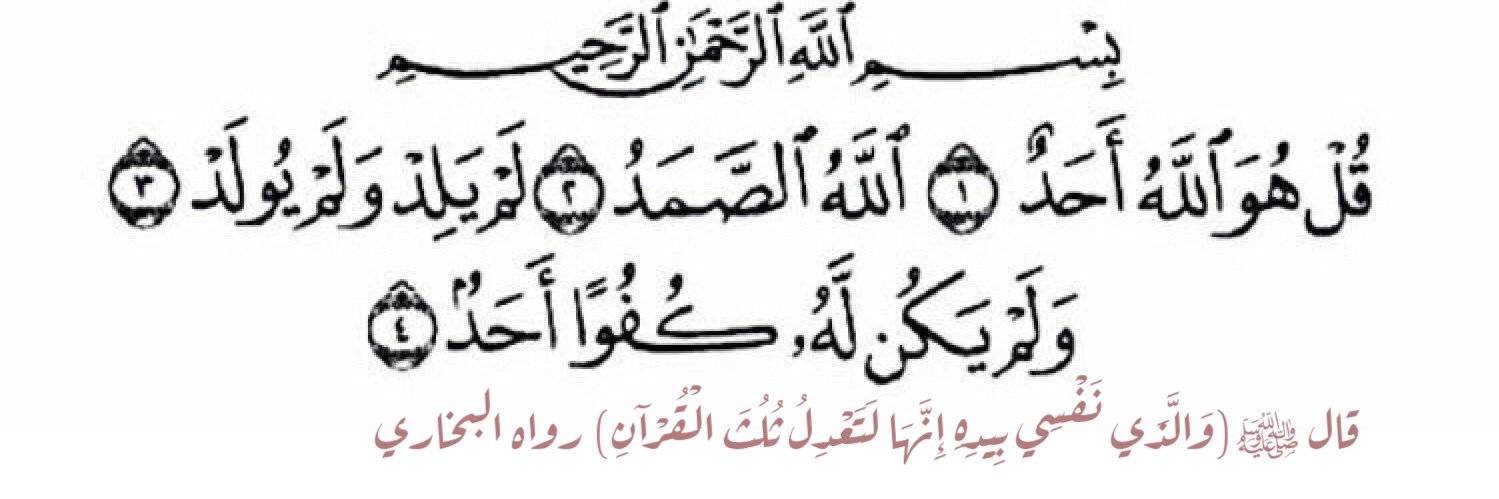 بِسْمِ ٱللَّهِ ٱلرَّحْمَٰنِ ٱلرَّحِيمِ
قُلْ هُوَ ٱللَّهُ أَحَدٌ ١ ٱللَّهُ ٱلصَّمَدُ ٢ لَمْ يَلِدْ وَلَمْ يُولَدْ ٣
وَلَمْ يَكُن لَّهُۥ كُفُوًا أَحَدٌۢ ٤
قال ﷺ (وَالَّذي نَفْسِي بِيدِه إِنَّهَا لَتَعْدِلُ ثُلُثَ الْقُرْآنِ) رواه البخاري